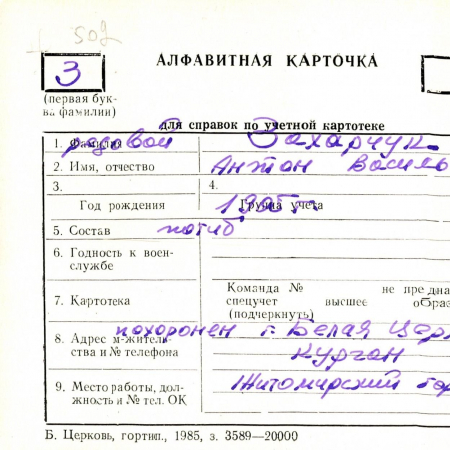 502
З
АЛФАВИТНАЯ КАРТОЧКА
(первая бук-
ва фамилии)
для справок по учетной картотеке
1. Фамилия Захарчук
рядовой
2. Имя, отчество Антон Василь
3. 4.
Год рождения 1925г. Группа учета
5. Состав погиб
6. Годность к воен-
службе
7. Картотека
Команда № не предна
спецучет высшее образ
(подчеркнуть)
похоронен г. Белая Цер
8. Адрес м-житель-
ства и № телефона Курган
9. Место работы, дол-
жность и № тел. ОК Житомирский гор
Б. Церковь, гортип., 1985, з. 3589—20000